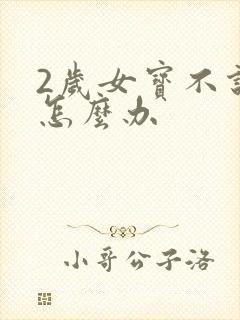 2歲女寶不
怎麼办
小哥公子洛